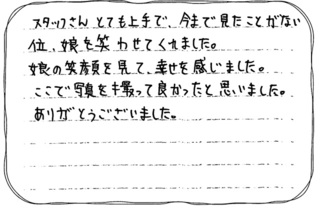 スタッフさん とても上手で、今まで見たことがない
位、娘を笑わせてくれました。
娘の笑顔を見て、幸せを感じました。
ここで写真を撮って良かったと思いました。
ありがとうございました。